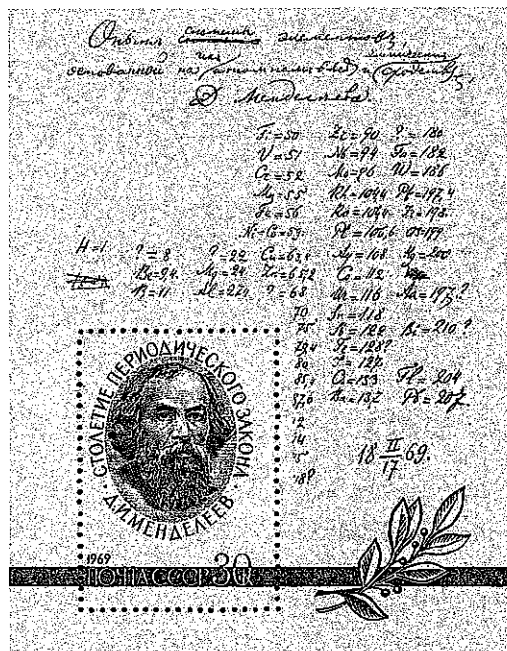 Опытъ системы элементовъ
основанной на атомномъ вѣсѣ и химическомъ сходствѣ
Д Менделѣева.
Ti=50 Zr=90 ?=180
V=51 Nb=94 Ta=182
Cr=52 Mo=96 W=186
Mn=55 Rh=104,4 Pt=197,4
Fe=56 Ru=104,4 Ir=198
Ni=Co=59 Pd=106,6 Os=199
H=1 ?=8 ?=22 Cu=63,4 Ag=108 Hg=200
Be=9,4 Mg=24 Zn=65,2 Cd=112
B=11 Al=27,4 ?=68 Ur=116 Au=197?
70 Sn=118
75 Sb=122 Bi=210?
79,4 Te=128?
80 I=127
85,4 Cs=133 Tl=204
87,6 Ba=137 Pb=207
18 II/17 69.
СТОЛЕТИЕ ПЕРИОДИЧЕСКОГО ЗАКОНА
Д.И.МЕНДЕЛЕЕВ
1969
ПОЧТА СССР 30К